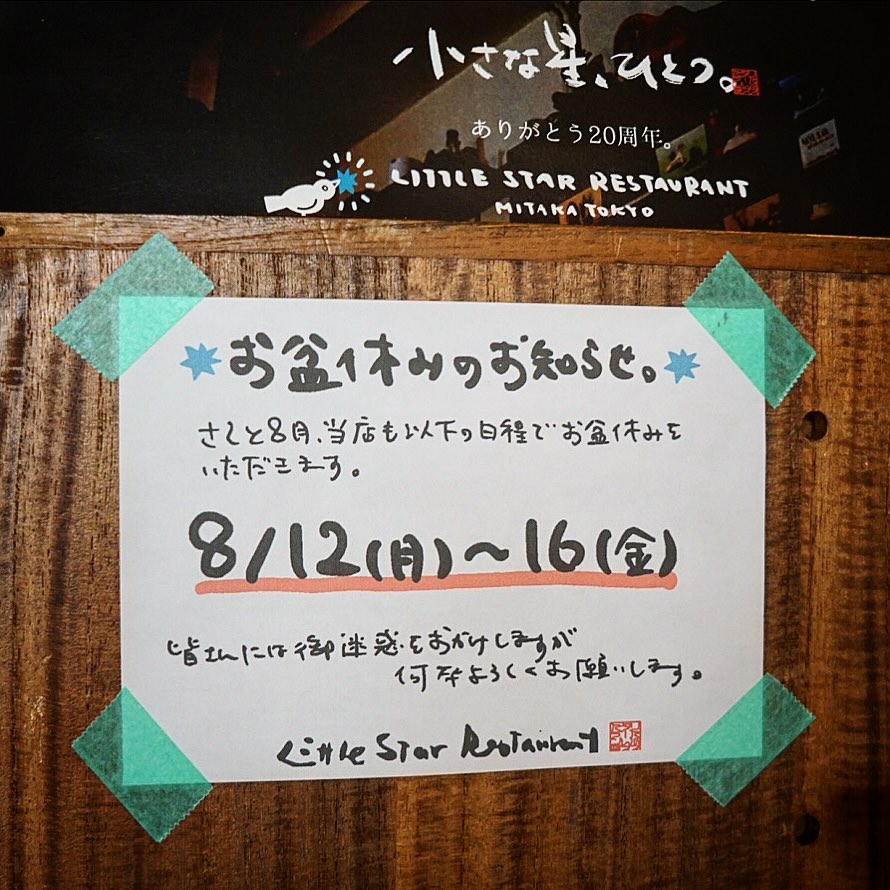 小さな星、ひとつ。
ありがとう20周年。
LITTLE STAR RESTAURANT
MITAKA TOKYO
お盆休みのお知らせ。
さくと8月、当店も以下の日程でお盆休みを
いただきます。
8/12(月)〜16(金)
皆さんには御迷惑をおかけしますが
何卒よろしくお願いします。
Little Star Restaurant